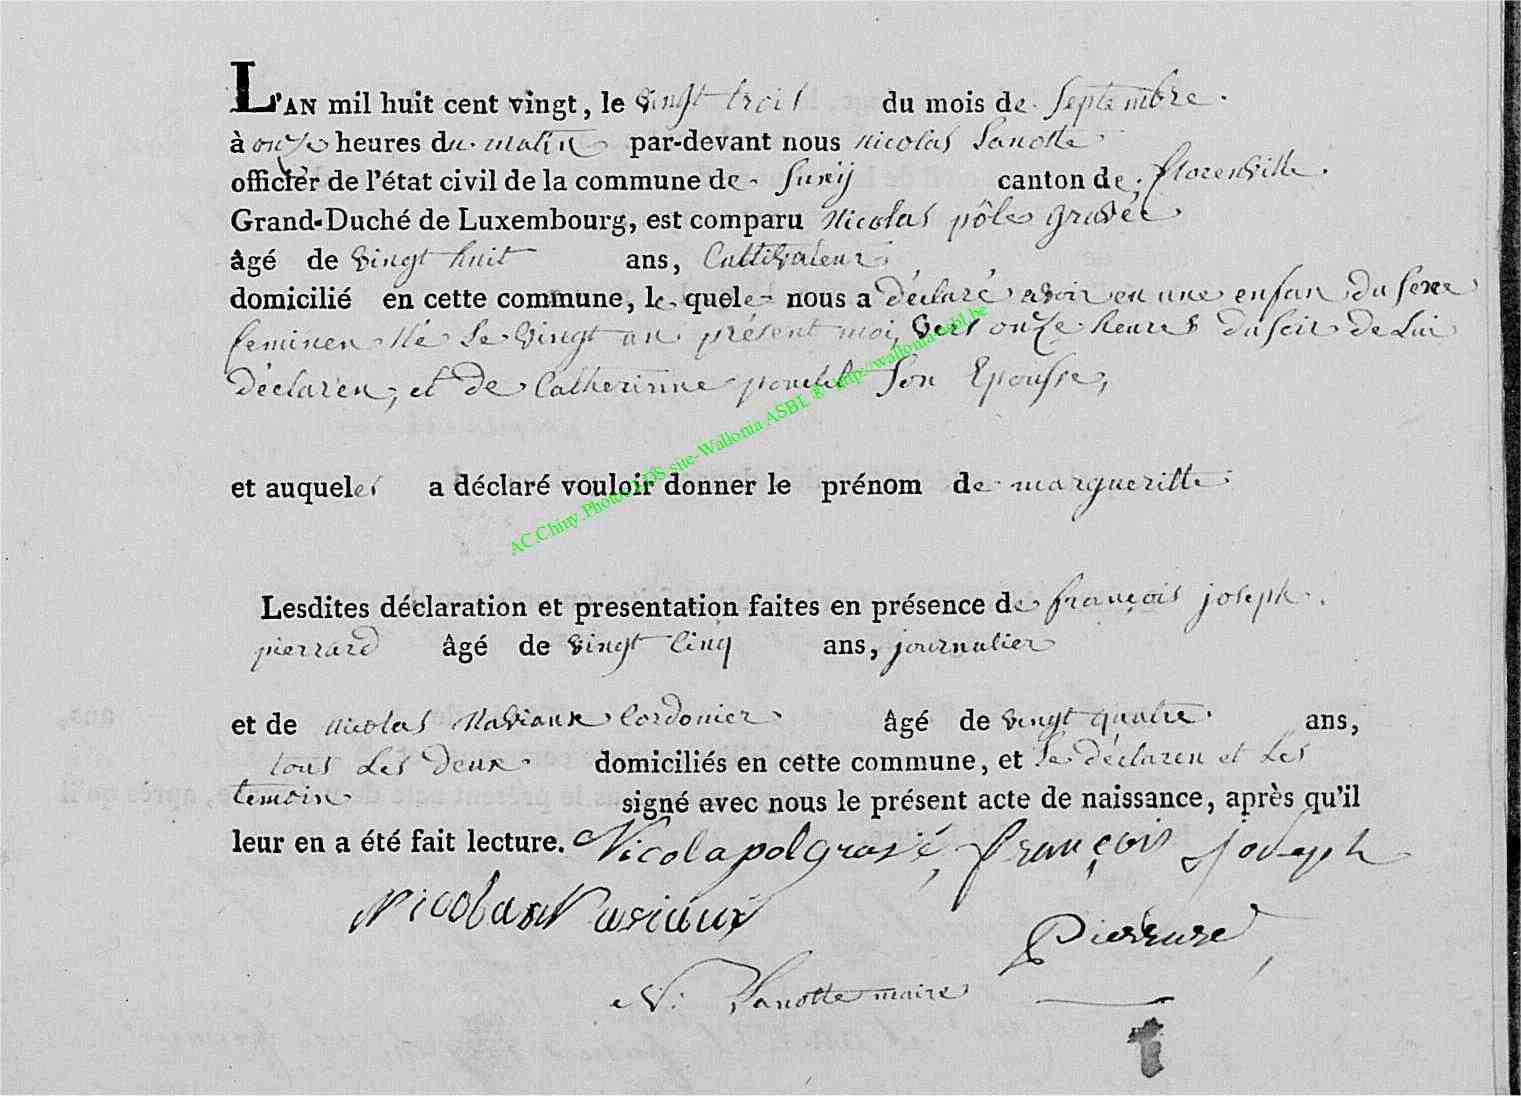 L'AN mil huit cent vingt, le vingt trois du mois de Septembre
à onze heures du matin par-devant nous nicolas Lanotte
officier de l'état civil de la commune de Suxÿ canton de florenville
Grand-Duché de Luxembourg, est comparu Nicolas pôle gravée
âgé de vingt huit ans, Cultivateur
domicilié en cette commune, le quele nous a déclaré avoir eu une enfan du sexe
feminen né le vingt un présent moi, vers onze heures du soir de Lui
déclaren, et de Catherinne son Epousse,
et auqueles a déclaré vouloir donner le prénom de margueritte
Lesdites déclaration et presentation faites en présence de françois joseph
pierrard âgé de vingt cinq ans, journalier
et de nicolas Naviaux Cordonier âgé de vingt quatre ans,
tous Les deux domiciliés en cette commune, et le déclaren et Les
temoin signé avec nous le présent acte de naissance, après qu'il
leur en a été fait lecture. Nicola pol gravé, françois Joseph
Nicolas Naviaux
N. Lanotte maire
AC.Chiny.Photos LDS sue-Wallonia ASBL © http://wallonia-asbl.be